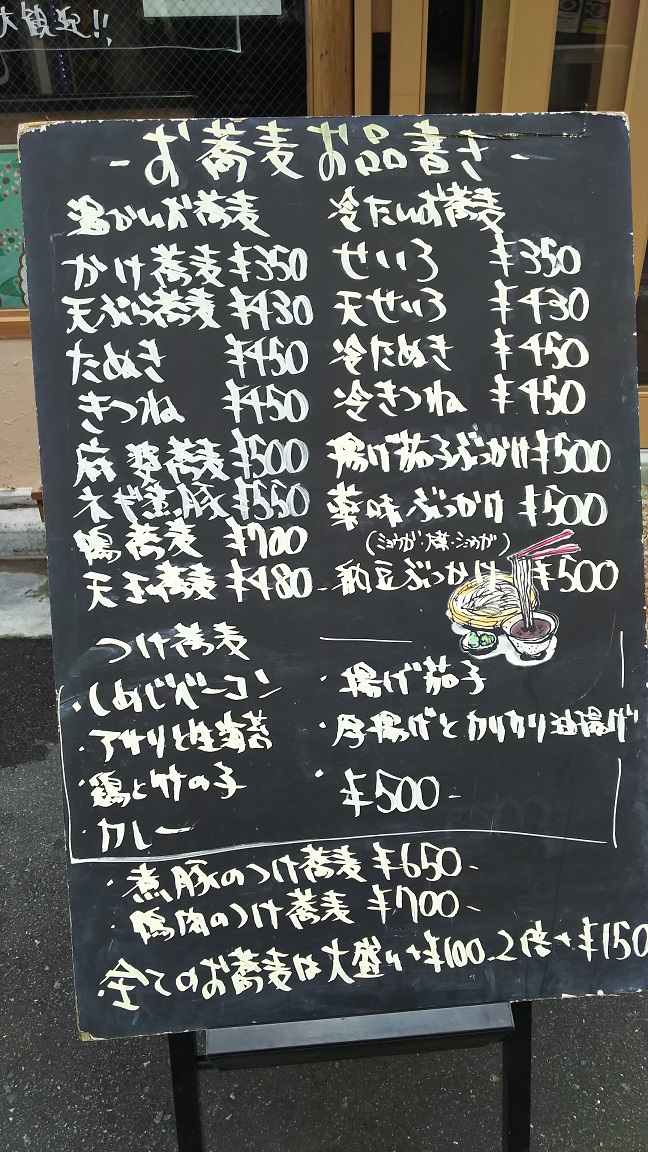 大歓迎!!
-お蕎麦お品書き-
温かいお蕎麦
かけ蕎麦 ¥350
天ぷら蕎麦 ¥430
たぬき ¥450
きつね ¥450
麻婆蕎麦 ¥500
ネギ煮豚 ¥550
鴨蕎麦 ¥700
天玉蕎麦 ¥480
冷たいお蕎麦
せいろ ¥350
天せいろ ¥430
冷たぬき ¥450
冷きつね ¥450
揚げ茄子ぶっかけ ¥500
薬味ぶっかけ ¥500
(ミョウガ・大葉・ショウガ)
納豆ぶっかけ ¥500
つけ蕎麦
・しめじベーコン
・アサリと生海苔
・鶏と竹の子
・カレー
・揚げ茄子
・厚揚げとカリカリ油揚げ
・¥500-
・煮豚のつけ蕎麦 ¥650-
・鴨肉のつけ蕎麦 ¥700-
全てのお蕎麦は大盛り+¥100-2倍+¥150